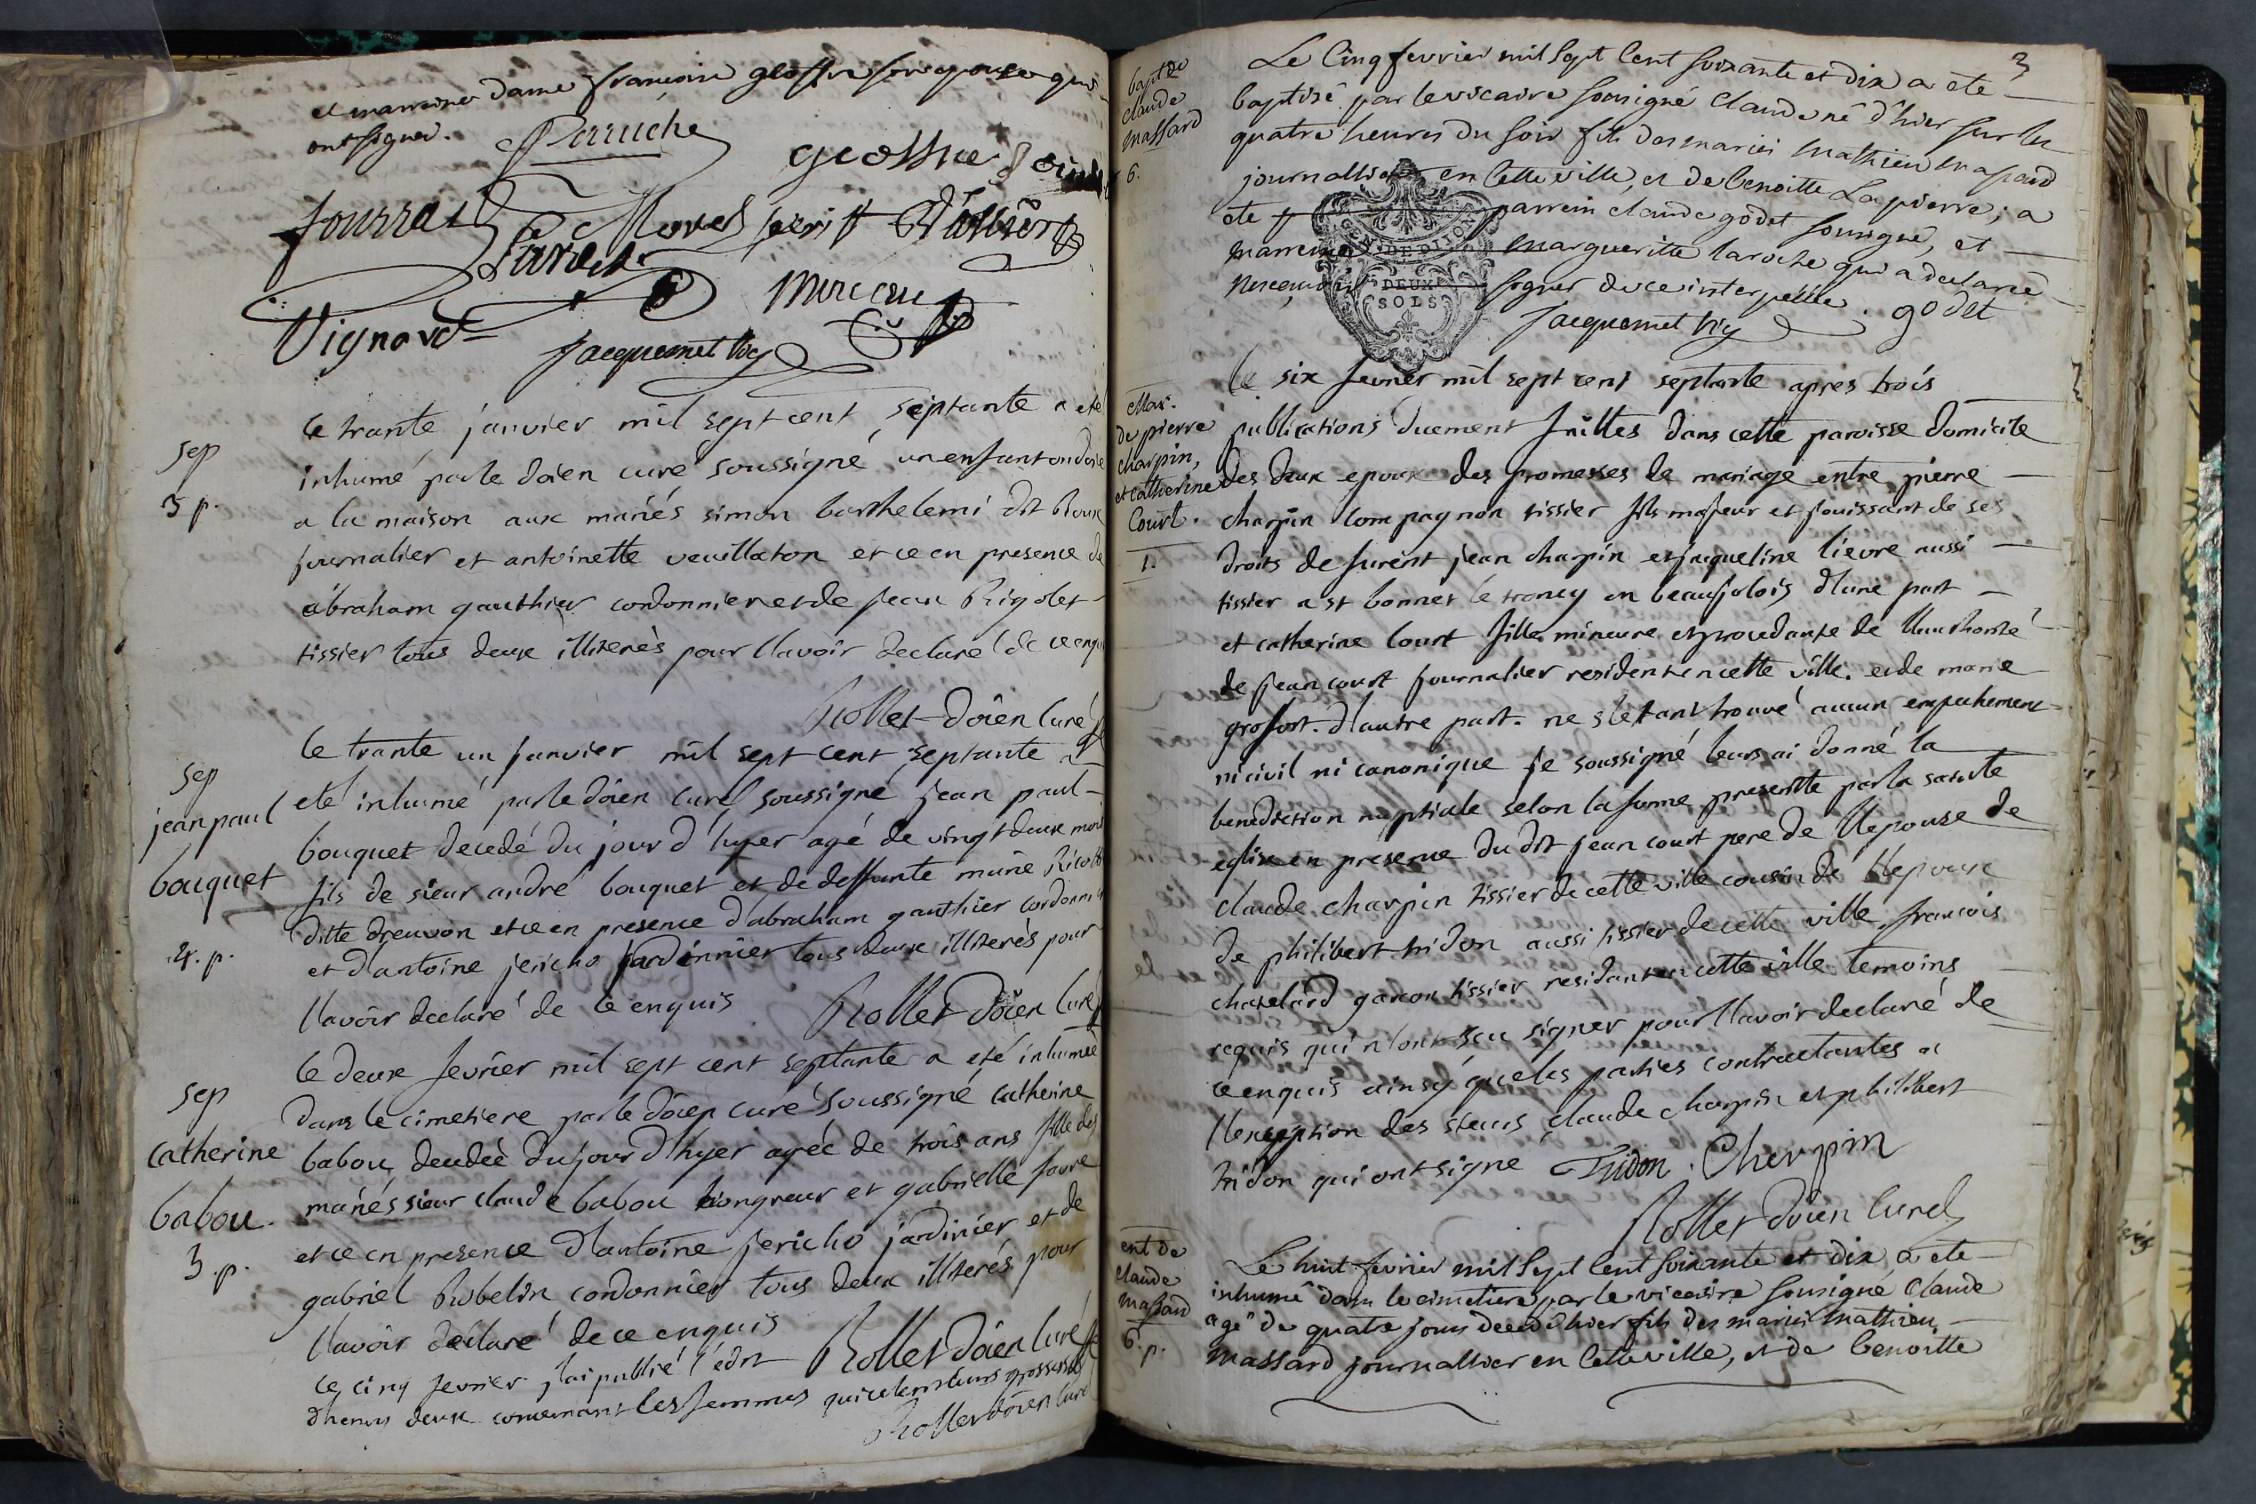 et marraine dame françoise grosse son epouse qui
ont signer.
Perruche
grosse
fourrat
Morel peritt
faret
mureau
Vignard
Jacquemet vic
sep
3 p.
le trante janvier mil sept cent septante a eté
inhumé par le doien curé soussigné un enfant ondoié
a la maison aux mariés simon barthelemi dit bioux
journalier et antoinette veuillaton et ce en presence de
abraham gauthier cordonnier et de jean Rigolet
tissier tous deux illiterés pour l'lavoir declaré de ce enquis
Rollet doien curé
sep
jean paul
bouquet
4. p.
le trante un janvier mil sept cent septante a
eté inhumé par le doien curé soussigné jean paul
bouquet decedé du jour d'hyer agé de vingt deux mois
fils de sieur andré bouquet et de deffunte marie
ditte drevon et ce en presence d'abraham gauthier cordonnier
et d'antoine jericho jardinnier tous deux illiterés pour
l'lavoir declaré de ce enquis Rollet doien curé
sep
catherine
babou.
3. p.
le deux fevrier mil sept cent septante a eté inhumée
dans le cimetiere par le doien curé soussigné catherine
babou, decedeé du jour d'hyer ageé de trois ans fille des
mariés sieur claude babou hongreur et gabrielle favre
et ce en presence d'antoine jericho jardinier et de
gabriel Robelin cordonnier tous deux illiterés pour
l'lavoir declaré de ce enquis Rollet doien curé
le cinq fevrier j'ai publié l'edit
d'henry deux concernant les femmes qui celent leurs grossesses
Rollet doien curé
3
bapt de
claude
massard
6.
Le cinq fevrier mil sept cent soixante et dix a ete
baptisé par le vicaire soussigné claude né d'hier sur les
quatre heures du soir fils des mariés mathieu massard
journallier en cette ville, et de benoitte Lapierre; a
ete parrein claude godet soussigné, et
marreine margueritte laroche qui a declaré
ne sçavoir signer de ce interpellée. godet
Jacquemet vic
GEN. DE DIJON
DEUX
SOLS
Mar.
de pierre
charpin,
et catherine
Court.
1.
le six fevrier mil sept cent septante apres trois
publications duement faittes dans cette paroisse domicile
des deux epoux des promesses de mariage entre pierre
charpin compagnon tissier fils majeur et jouissant de ses
droits de furent jean charpin et jaqueline lievre aussi
tissier a st bonnet le troncy en beaujolois d'une part
et catherine court fille mineure et procedante de l'lauthorité
de jean court journalier resident en cette ville. et de marie
grosfort. d'autre part. ne s'etant trouvé aucun empechement
ni civil ni canonique je soussigné leurs ai donné la
benediction nuptiale selon la forme presentte par la sainte
eglise en presence du dit jean court pere de l'lepouse de
claude charpin tissier de cette ville cousin de l'lepoux
de philibert tridon aussi tissier de cette ville. francois
chatelard garcon tissier residant en cette ville temoins
requis qui n'ont sçu signer pour l'lavoir declaré de
ce enquis ainsy que les parties contractantes a
l'lexception des sieurs claude charpin et philibert
tridon qui ont signe Tridon. Cherpin
Rollet doien curé
ent de
claude
massard
6. p.
Le huit fevrier mil sept cent soixante et dix, a ete
inhumé dans le cimetiere par le vicaire soussigné claude
agé de quatre jours decedé d'hier fils des mariés mathieu
massard journallier en cette ville, et de benoitte